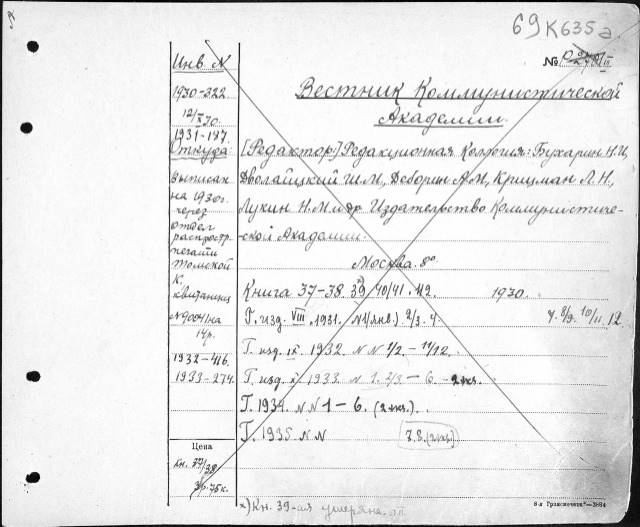 69 К635а
№
Инв N
1930-222
12/X 30.
1931-187.
Откуда:
выписан
на 1930г.
через
отдел
распростр.
печати
Томской
К.
квитанция
N 9004/на
14р.
1932-416.
1933-274.
Цена
Кн. 37/38
3р.75к.
Вестник Коммунистической
Академии.
[Редактор] Редакционная Коллегия: Бухарин Н.И.,
Дволайцкий Ш.М., Деборин А.М., Крицман Л.Н.,
Лукин Н.М. и др. Издательство Коммунистиче-
-ской Академии.
Москва. 8°
Книга 37-38. 39 x) 40/41. 42. 1930.
Г. изд. VIII. 1931. N1(янв.) 2/3. 4. 7. 8/9. 10/11. 12.
Г. изд. IX. 1932. N N 1/2. - 11/12.
Г. изд. X. 1933. N 1. 2/3 - 6. - 2 экз.
Г. 1934. N N 1 - 6. (2 экз.).
Г. 1935. N N 7. 8. (2 экз)
x) Кн. 39-ая утеряна.
8-я Транспечать—3884